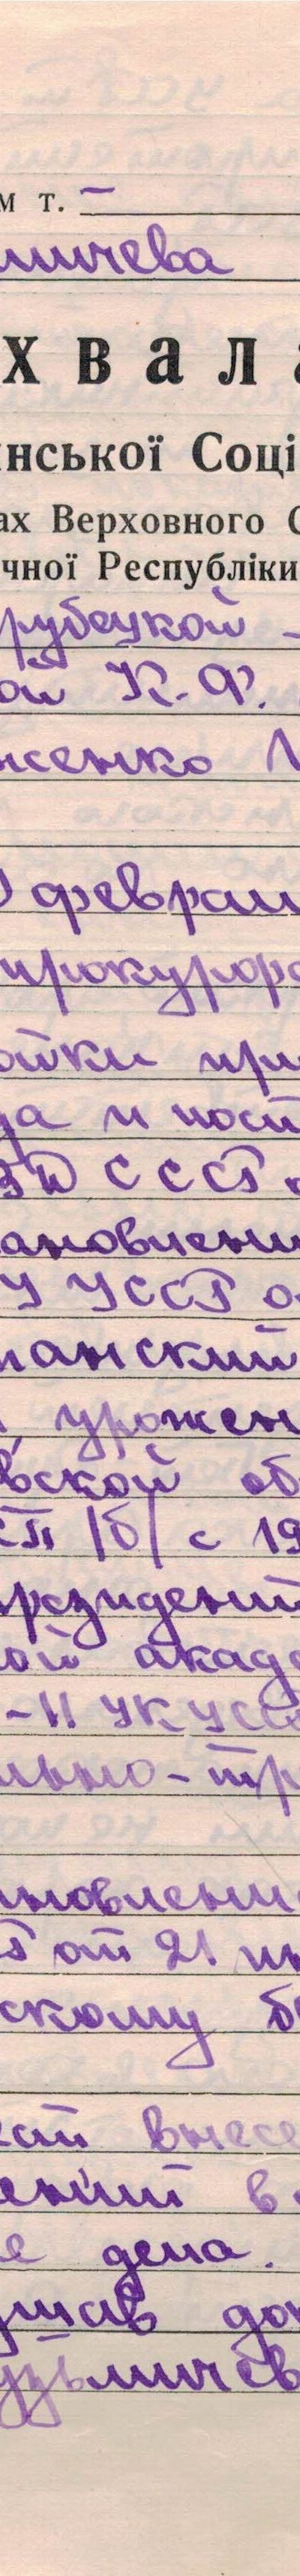 м т. –
мичева
хвала
нської Соці
ах Верховного С
чної Республіки
рубецкой –
ой К. Ф.
женко
феврали
прокурора
ойки при
да и пост
ВД СССР.
ановлени
У УССР о
манский
урожен
вской об
КП/б/ с 19
президент
ой акаде
-11 УК УССР
льно-тр
ановлени
Р от 21 ию
скому б
ест внесе
ений в
е дела.
ушав док
узьмичев